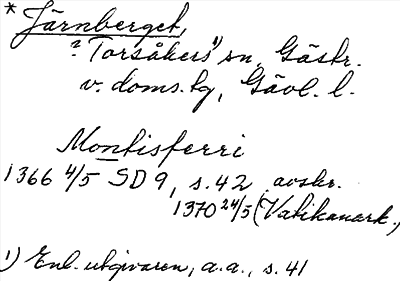 * Järnberget,
? Torsåkers 1) sn, Gästr.
v. doms. hg, Gävl. l.
Montisferri
1366 4/5 SD 9, s. 42 avskr.
1370 24/5 (Vatikanark.,
1) Enl. utgivaren, a.a., s. 41